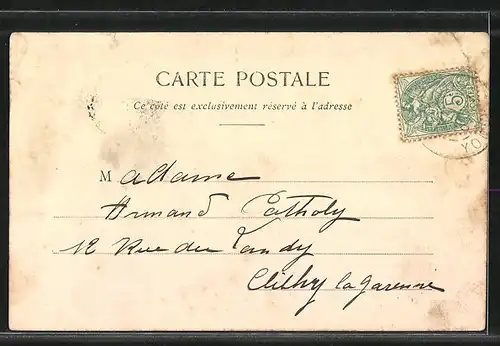 CARTE POSTALE
Ce côté est exclusivement réservé à l'adresse
Madame
Armand
12 Rue du Landy
Clichy la Garenne
5